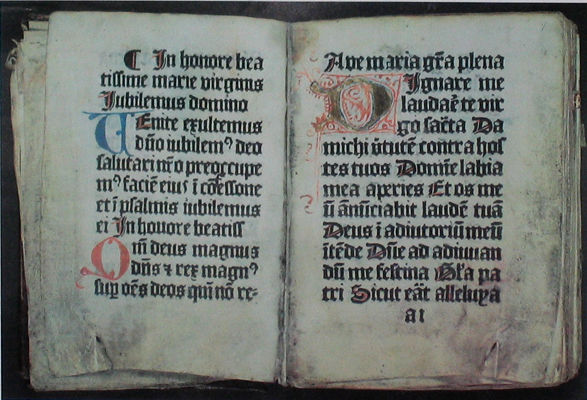 In honore bea
tissime marie virginis
Jubilemus domino
VEnite exultemus
dño iubilem⁹ deo
salutari nr̄o preoccupe
m⁹ faciē eius ī cōfessione
et ī psalmis iubilemus
ei In honore beatiss
Qm̄ deus magnus
dñs ⁊ rex magn⁹
sup oēs deos qm̄ nō re-
Ave maria gr̄a plena
DIgnare me
laudar̄e te vir
go sac̄ta Da
michi v̄tutē contra hos
tes tuos Domīe labia
mea aperies Et os me
ū ānūciabit laudē tuā
Deus ī adiutoriū meū
ītēde Dn̄e ad adiuuan
dū me festina Gl̄a pa
tri Sicut erāt alleluya
a i